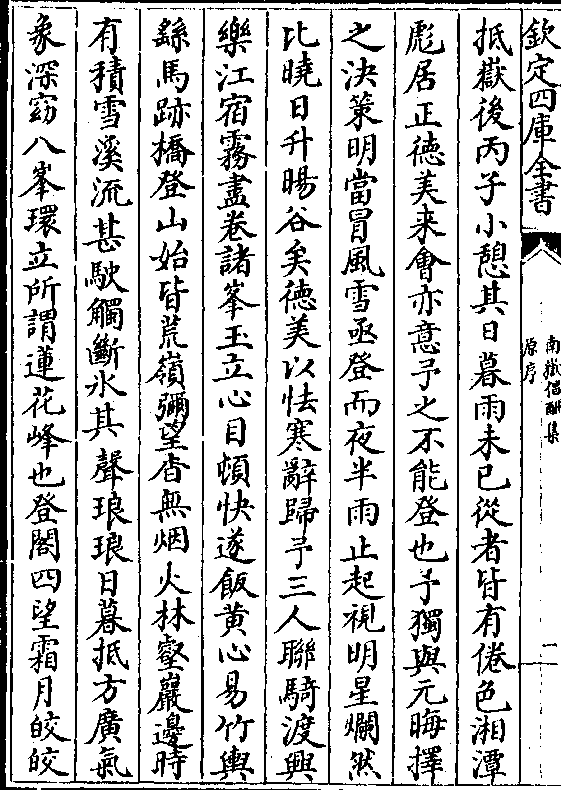 欽定四庫全書
南嶽倡酬集
原序
二
抵嶽後丙子小憩其日暮雨未已從者皆有倦色湘潭
彪居正德美来會亦意予之不能登也予獨與元晦擇
之決策明當冒風雪亟登而夜半雨止起視明星爛然
比曉日升暘谷矣德美以怯寒辭歸予三人聯騎渡興
樂江宿霧盡卷諸峯玉立心目頓快遂飯黄心易竹輿
繇馬跡橋登山始皆荒嶺彌望㫺無烟火林壑巖邊時
有積雪溪流甚駛觸斷氷其聲琅琅日暮抵方廣氣
象深窈八峯環立所謂蓮花峰也登閣四望霜月皎皎